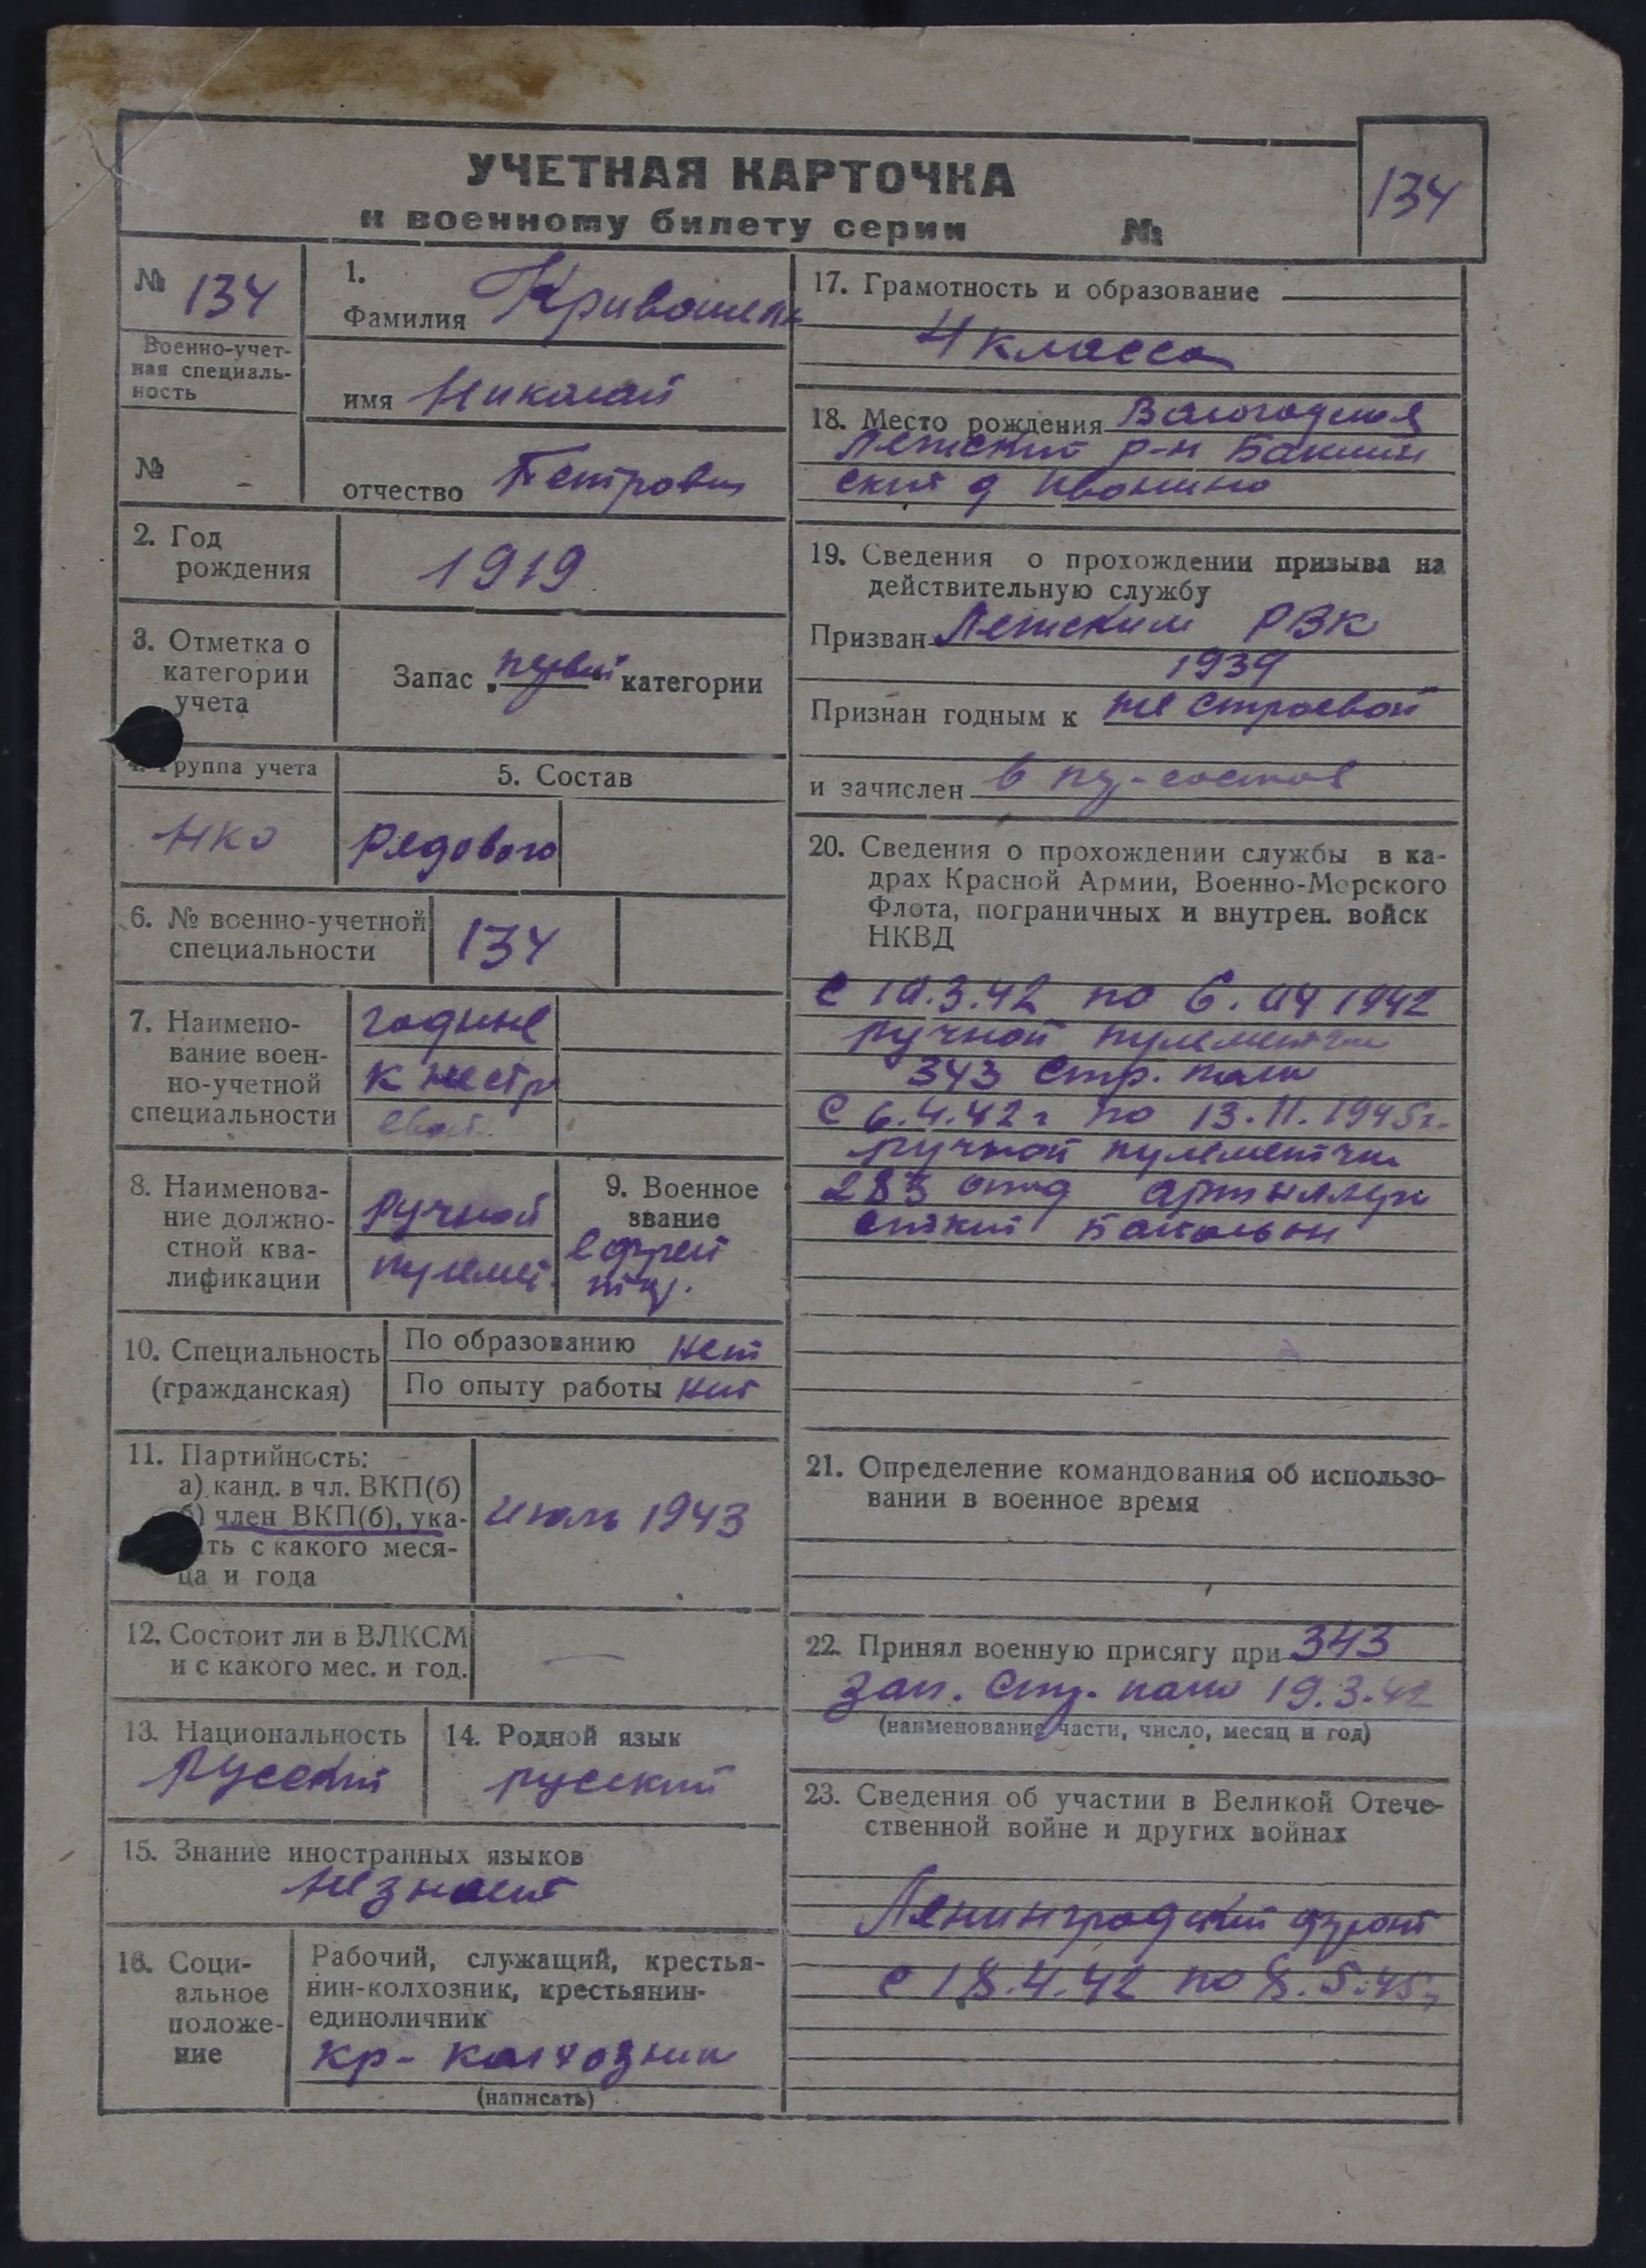 УЧЕТНАЯ КАРТОЧКА
к военному билету серии №
134
№ 134
Военно-учет-
ная специаль-
ность
№ -
1.
Фамилия
имя Николай
отчество Петрович
2. Год
рождения
1919
3. Отметка о
категории
учета
Запас „первой“ категории
4. Группа учета
НКО
5. Состав
Рядового
6. № военно-учетной
специальности
134
7. Наимено-
вание воен-
но-учетной
специальности
годные
к нестр
евой
8. Наименова-
ние должно-
стной ква-
лификации
Ручной
пулемет.
9. Военное
звание
ефрей
тор.
10. Специальность
(гражданская)
По образованию нет
По опыту работы нет
11. Партийность:
а) канд. в чл. ВКП(б)
б) член ВКП(б), ука-
ть с какого меся-
ца и года
Июль 1943
12. Состоит ли в ВЛКСМ
и с какого мес. и год.
—
13. Национальность
Русский
14. Родной язык
русский
15. Знание иностранных языков
не знает
16. Соци-
альное
положе-
ние
Рабочий, служащий, крестья-
нин-колхозник, крестьянин-
единоличник
кр- колхозник
(написать)
17. Грамотность и образование
4 класса
18. Место рождения
р-н
ский д Ивонино
19. Сведения о прохождении призыва на
действительную службу
Призван РВК
1939
Признан годным к не строевой
и зачислен в
20. Сведения о прохождении службы в ка-
драх Красной Армии, Военно-Морского
Флота, пограничных и внутрен. войск
НКВД
с 10.3.42 по 6.04 1942
ручной пулеметчик
343 стр. полк
С 6.4.42 г по 13.11.1945г.
ручной пулеметчик
283 отд артиллери
батальон
21. Определение командования об использо-
вании в военное время
22. Принял военную присягу при 343
зап. стр. полк 19.3.42
(наименование части, число, месяц и год)
23. Сведения об участии в Великой Отече-
ственной войне и других войнах
Ленинградский фронт
с 18.4.42 по 8.5.45г